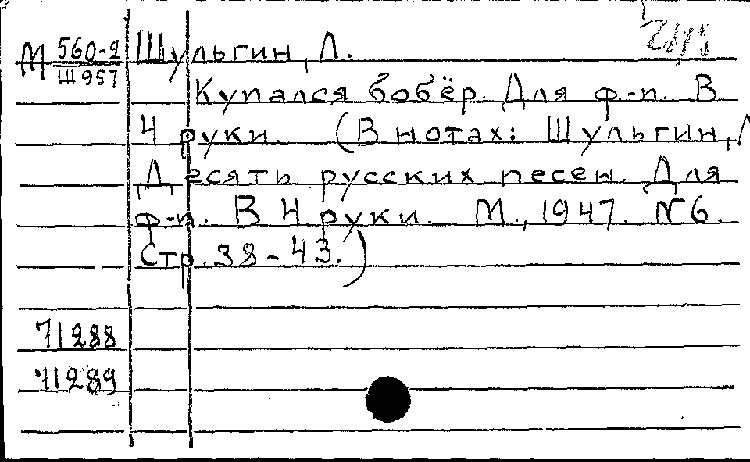 М 560-2 Шульгин, Л.
Ш957
Купался бобёр. Для ф-п. В
4 руки. (В нотах: Шульгин, Л
Десять русских песен. Для
ф-п. В 4 руки. М., 1947. №6.
Стр. 38-43.)
71288
71289